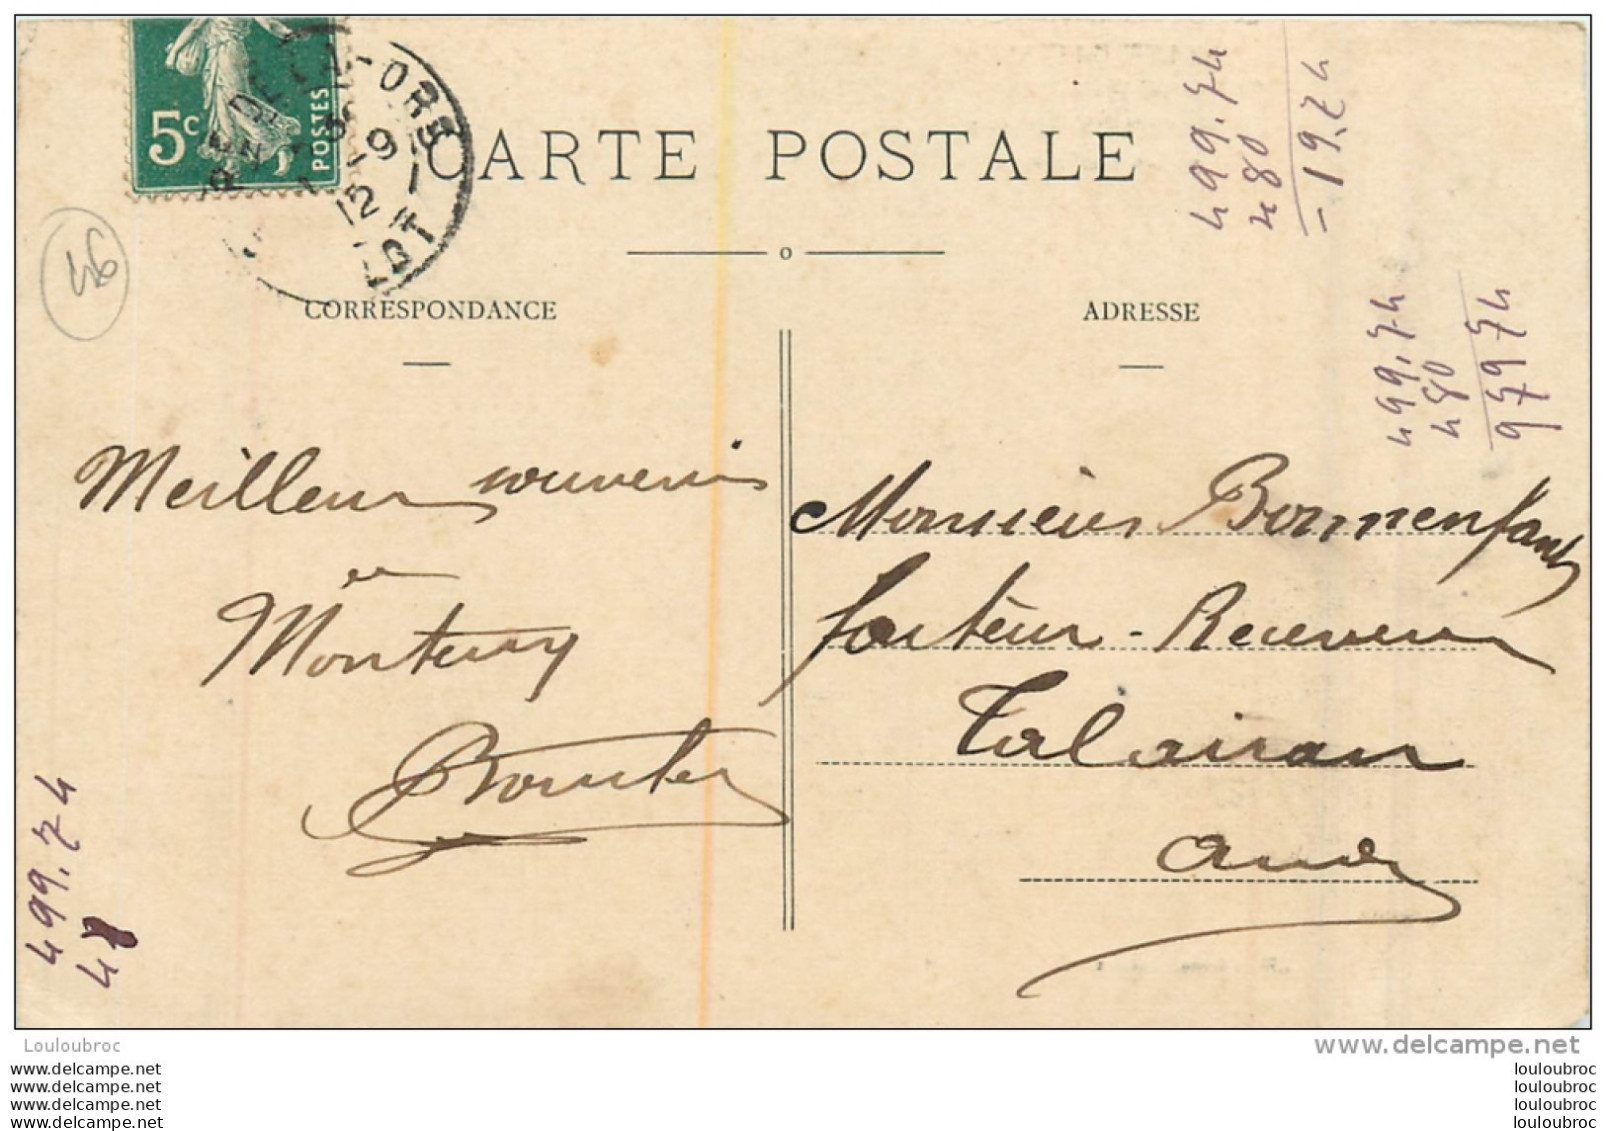 5c
POSTES
LOT
CARTE POSTALE
499.74
480
-19.74
46
CORRESPONDANCE
ADRESSE
499,74
480
979 74
Meilleur souvenir
Monsieur Bonnenfant
facteur-Receveur
Talairan
aude
499.74
48
Louloubroc
www.delcampe.net
www.delcampe.net
www.delcampe.net
www.delcampe.net
www.delcampe.net
louloubroc
louloubroc
louloubroc
louloubroc